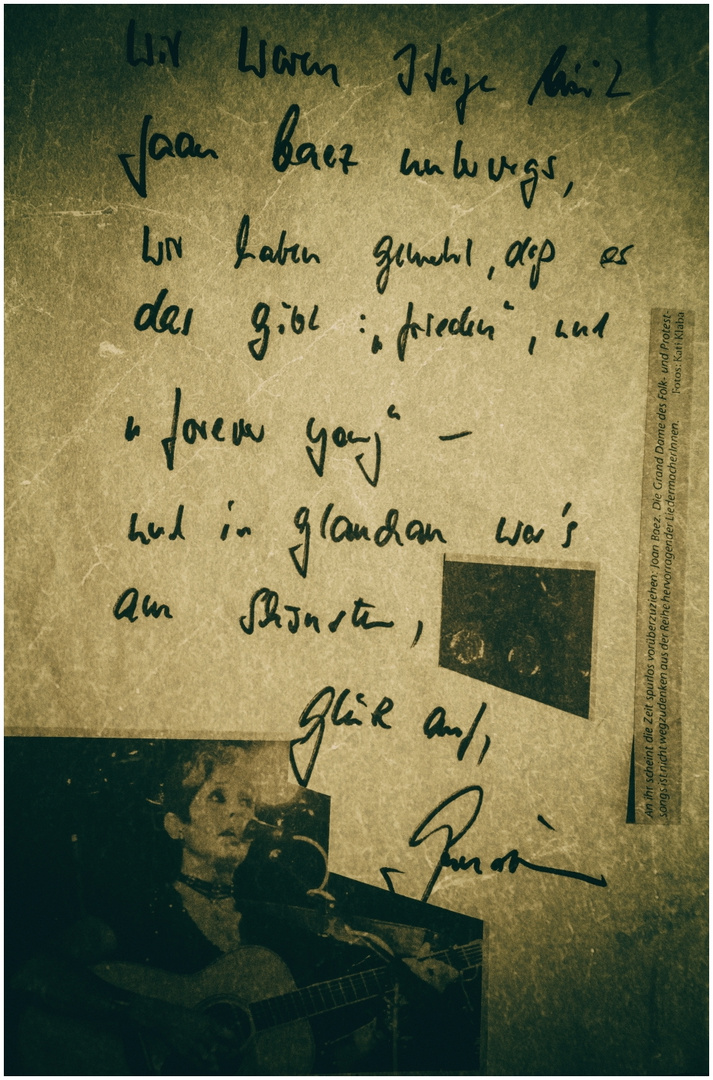 Wir waren 3 Tage mit
Joan Baez unterwegs,
wir haben gemerkt, daß es
das gibt: „frieden“, und
„forever young“ –
und in Glauchau war's
am Schönsten,
Glück auf,
An ihr scheint die Zeit spurlos vorüberzuziehen: Joan Baez. Die Grand Dame des Folk- und Protest-
songs ist nicht wegzudenken aus der Reihe hervorragender LiedermacherInnen.
Fotos: Kati Klaba